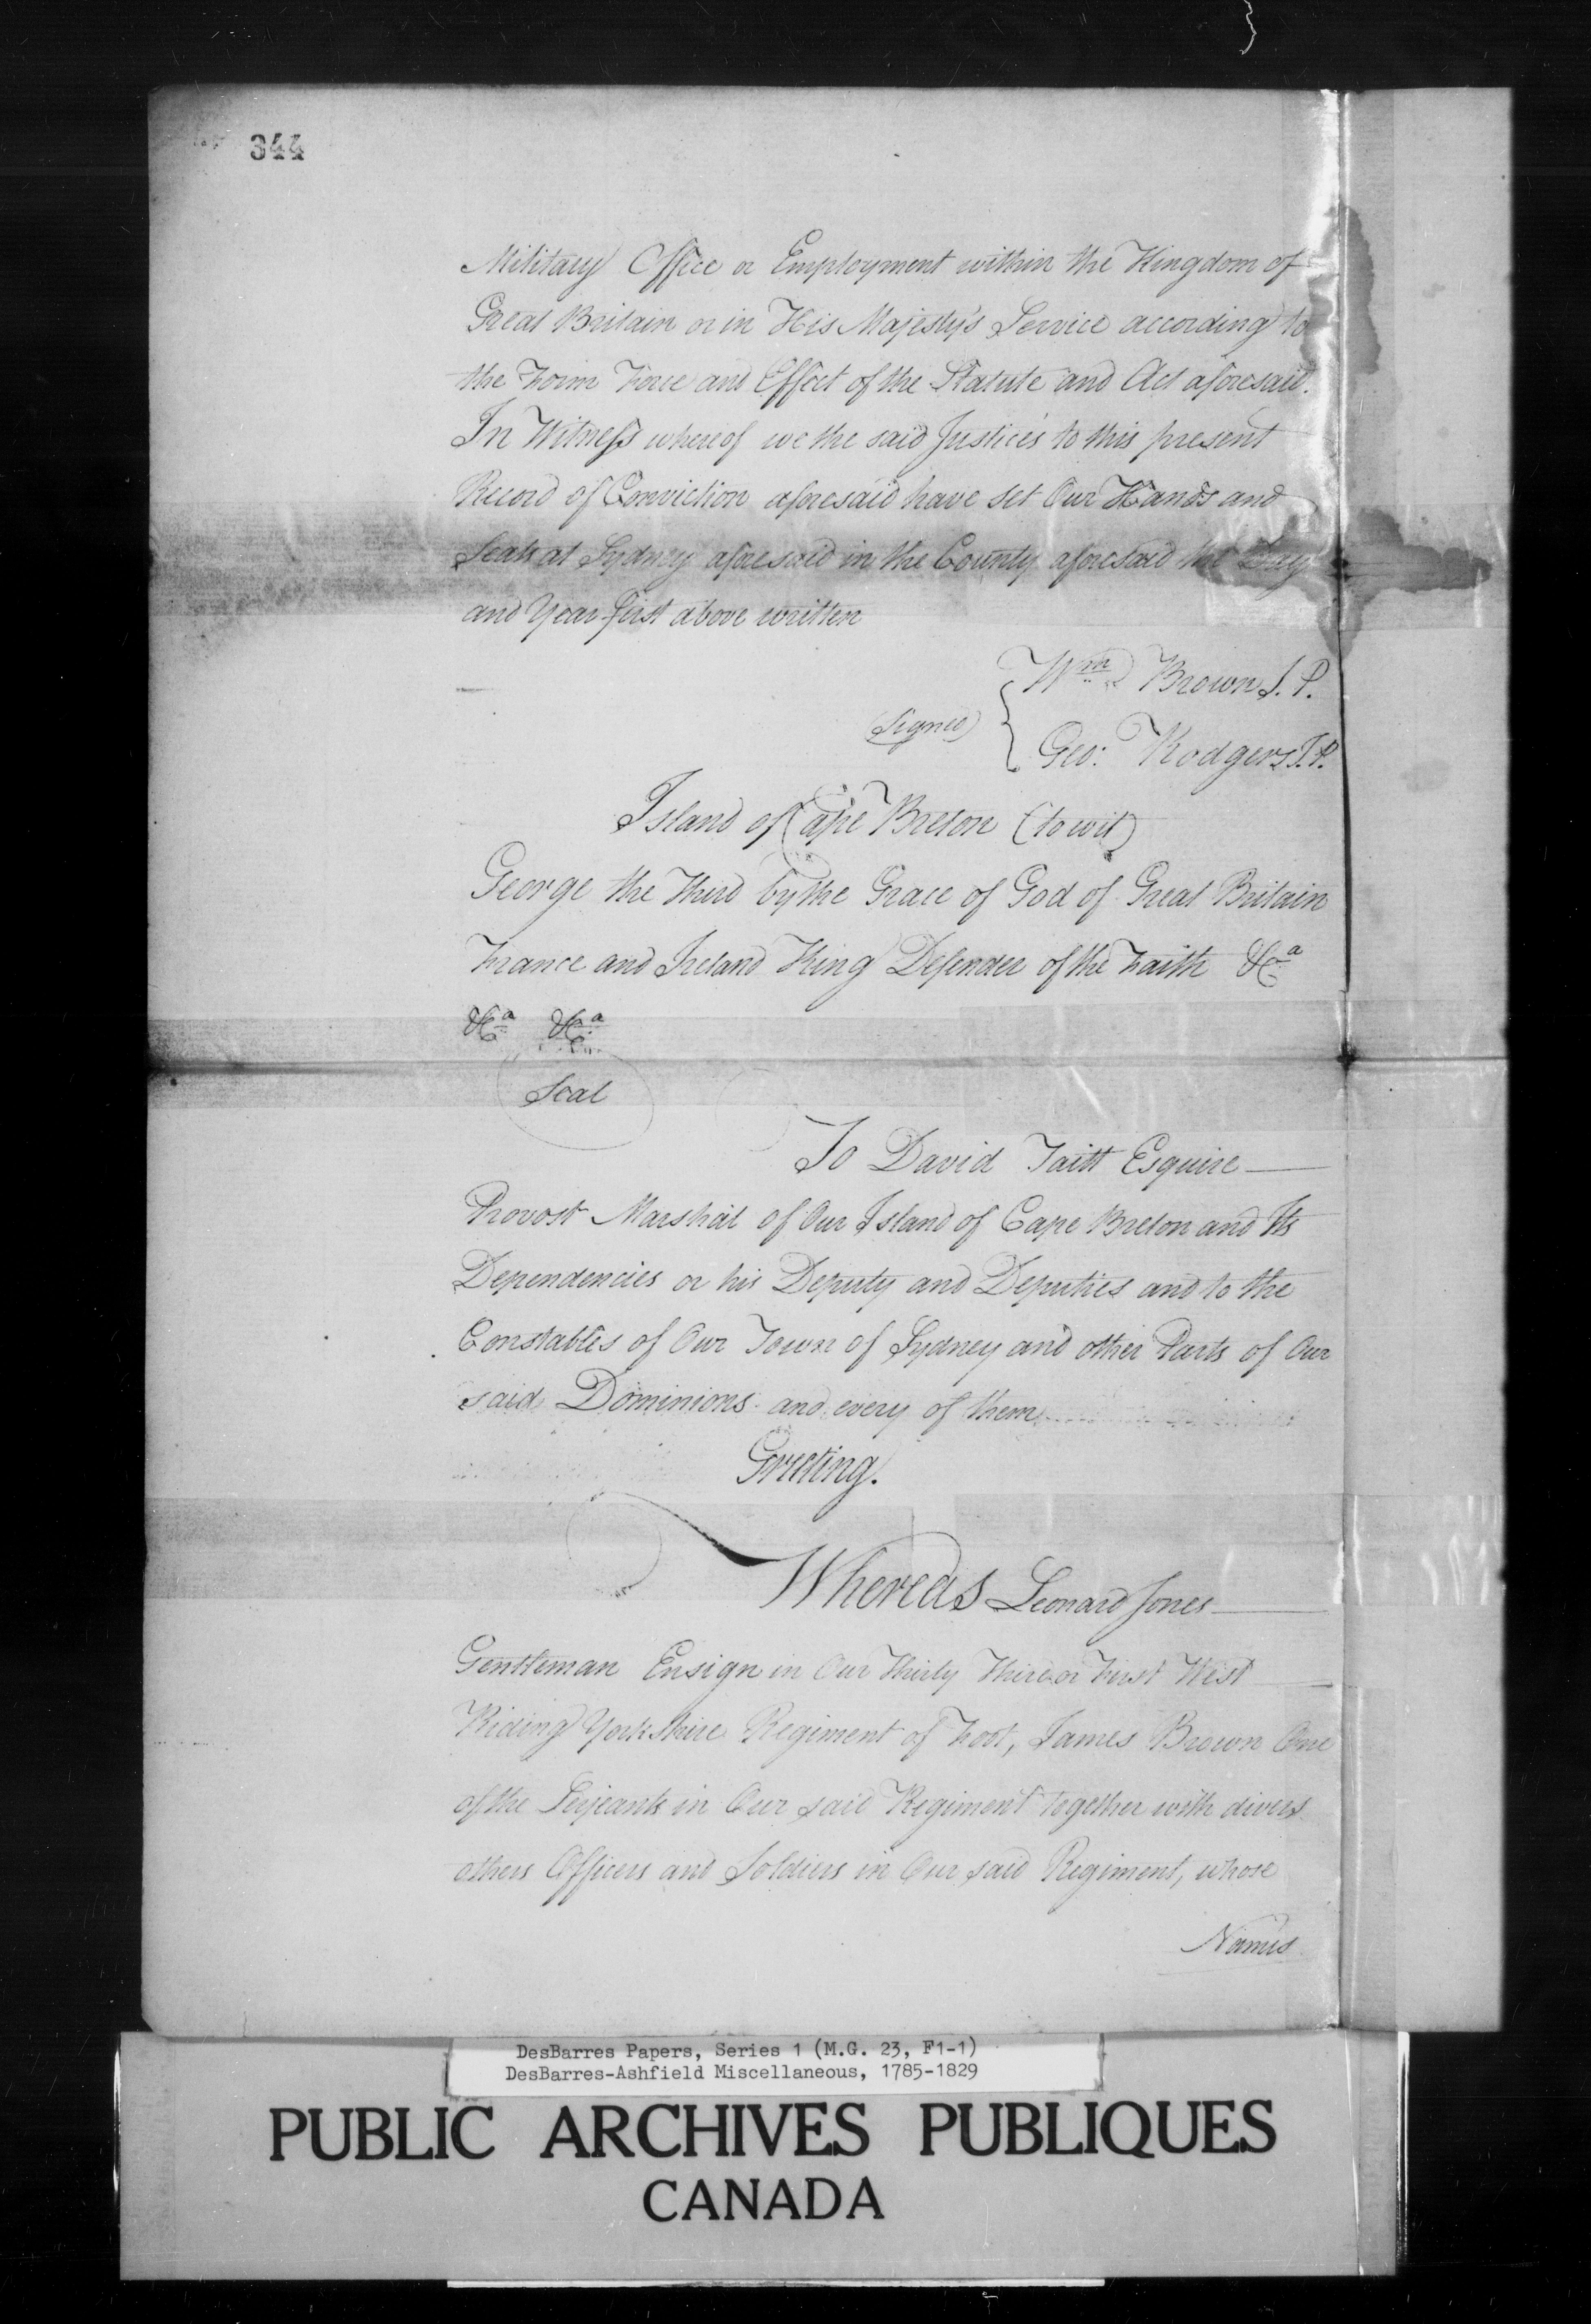 344
Military Office or Employment within the Kingdom of
Great Britain or in His Majesty's Service according to
the Form Force and Effect of the Statute and Act aforesaid.
In Witness whereof we the said Justices to this present
Record of Conviction aforesaid have set Our Hands and
Seals at Sydney aforesaid in the County aforesaid the Day
and Year first above written
Wm Brown J.P.
(signed)
Geo: Rodgers J.P.
Island of Cape Breton (to wit)
George the Third by the Grace of God of Great Britain
France and Ireland King Defender of the Faith &ca
&ca &ca
Seal
To David Taitt Esquire
Provost Marshal of Our Island of Cape Breton and Its
Dependencies or his Deputy and Deputies and to the
Constables of Our Town of Sydney and other Parts of Our
said Dominions and every of them
Greeting.
Whereas Leonard Jones
Gentleman Ensign in Our Thirty Third or First West
Riding Yorkshire Regiment of Foot, James Brown One
of the Serjeants in Our said Regiment together with divers
others Officers and Soldiers in Our said Regiment, whose
Names
DesBarres Papers, Series 1 (M.G. 23, F1-1)
DesBarres-Ashfield Miscellaneous, 1785-1829
PUBLIC ARCHIVES PUBLIQUES
CANADA